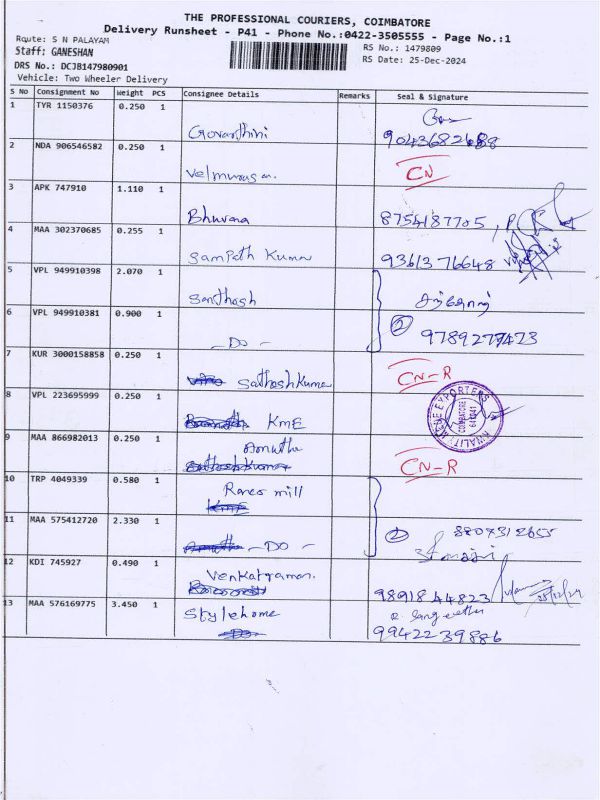 THE PROFESSIONAL COURIERS, COIMBATORE
Delivery Runsheet - P41 - Phone No.:0422-3505555 - Page No.:1
Route: S N PALAYAM
RS No.: 1479809
Staff: GANESHAN
RS Date: 25-Dec-2024
DRS No.: DCJB147980901
Vehicle: Two Wheeler Delivery
S No Consignment No Weight PCS Consignee Details Remarks Seal & Signature
1 TYR 1150376 0.250 1
Govarthini
2 NDA 906546582 0.250 1
Velmurugan. CN
3 APK 747910 1.110 1
Bhuvana 8754187705,
4 MAA 302370685 0.255 1
Sampath Kumar 9361376648
5 VPL 949910398 2.070 1
Santhosh சந்தோஷ்
6 VPL 949910381 0.900 1
- Do - 2 9789277473
7 KUR 3000158858 0.250 1
Sathoshkumar CN-R
8 VPL 223695999 0.250 1
KME
9 MAA 866982013 0.250 1
Amutha
CN-R
10 TRP 4049339 0.580 1
mill
KME
11 MAA 575412720 2.330 1
- Do - 2
12 KDI 745927 0.490 1
Venkatraman.
9891844823
13 MAA 576169775 3.450 1
Stylehome
Do
9942239886
EXPORTERS
COIMBATORE